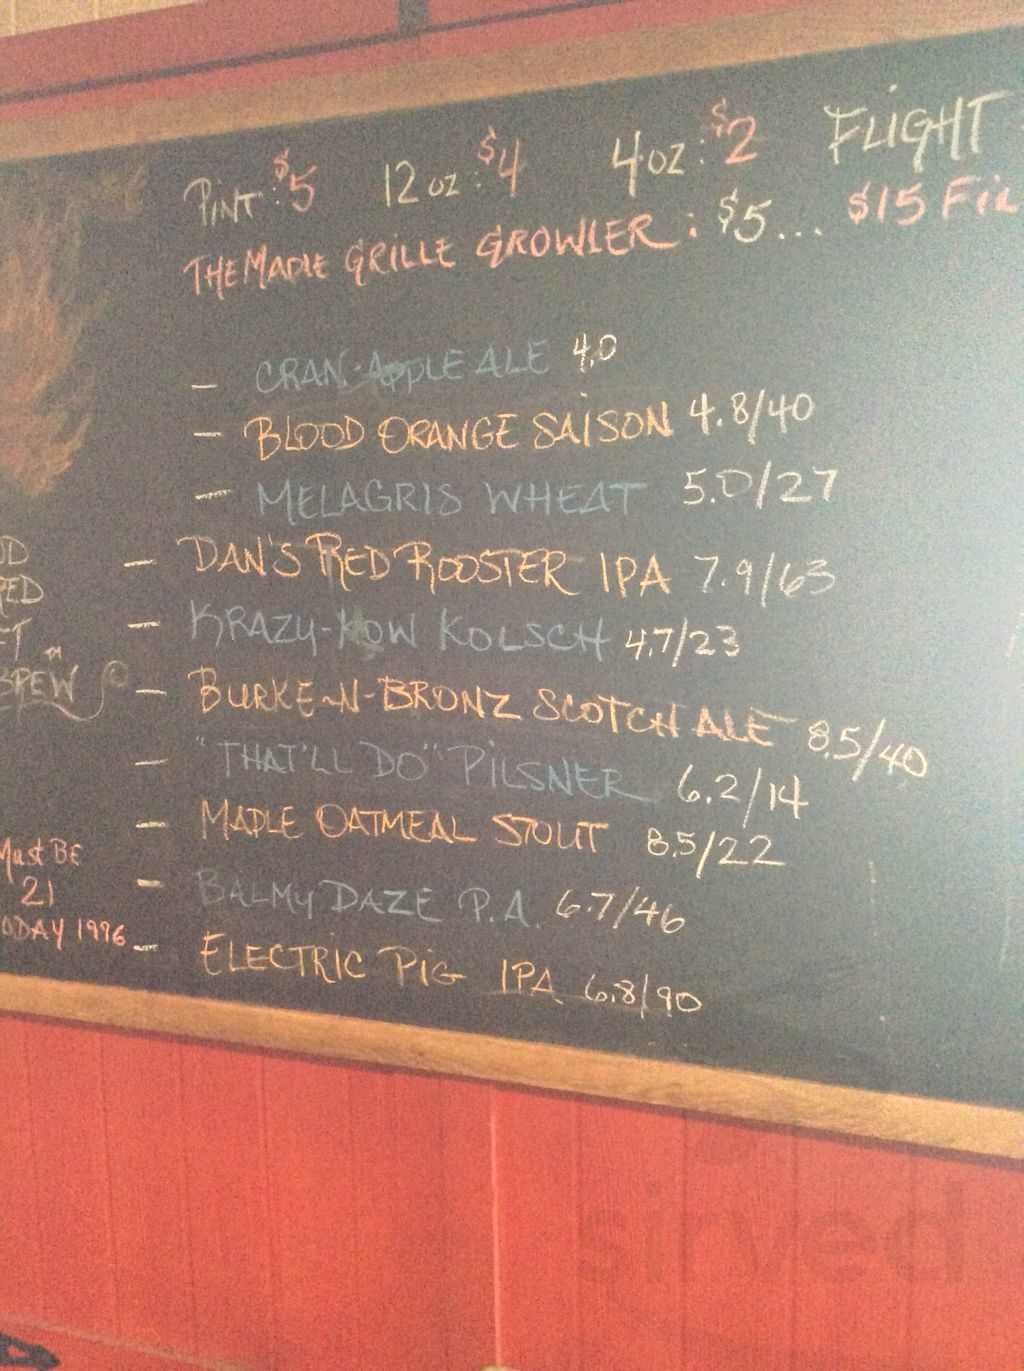 PINT: $5 12 oz: $4 4 oz: $2 FLIGHT
THE MAPLE GRILLE GROWLER: $5... $15 FIL
- CRAN-APPLE ALE 4.0
- BLOOD ORANGE SAISON 4.8/40
- MELAGRIS WHEAT 5.0/27
- DAN'S RED ROOSTER IPA 7.9/63
- KRAZY-KOW KOLSCH 4.7/23
- BURKE-N-BRONZ SCOTCH ALE 8.5/40
- "THAT'LL DO" PILSNER 6.2/14
- MAPLE OATMEAL STOUT 8.5/22
- BALMY DAZE P.A. 6.7/46
- ELECTRIC PIG IPA 6.8/90
RED
BREW ™
MUST BE
21
ODAY 1996
sirved